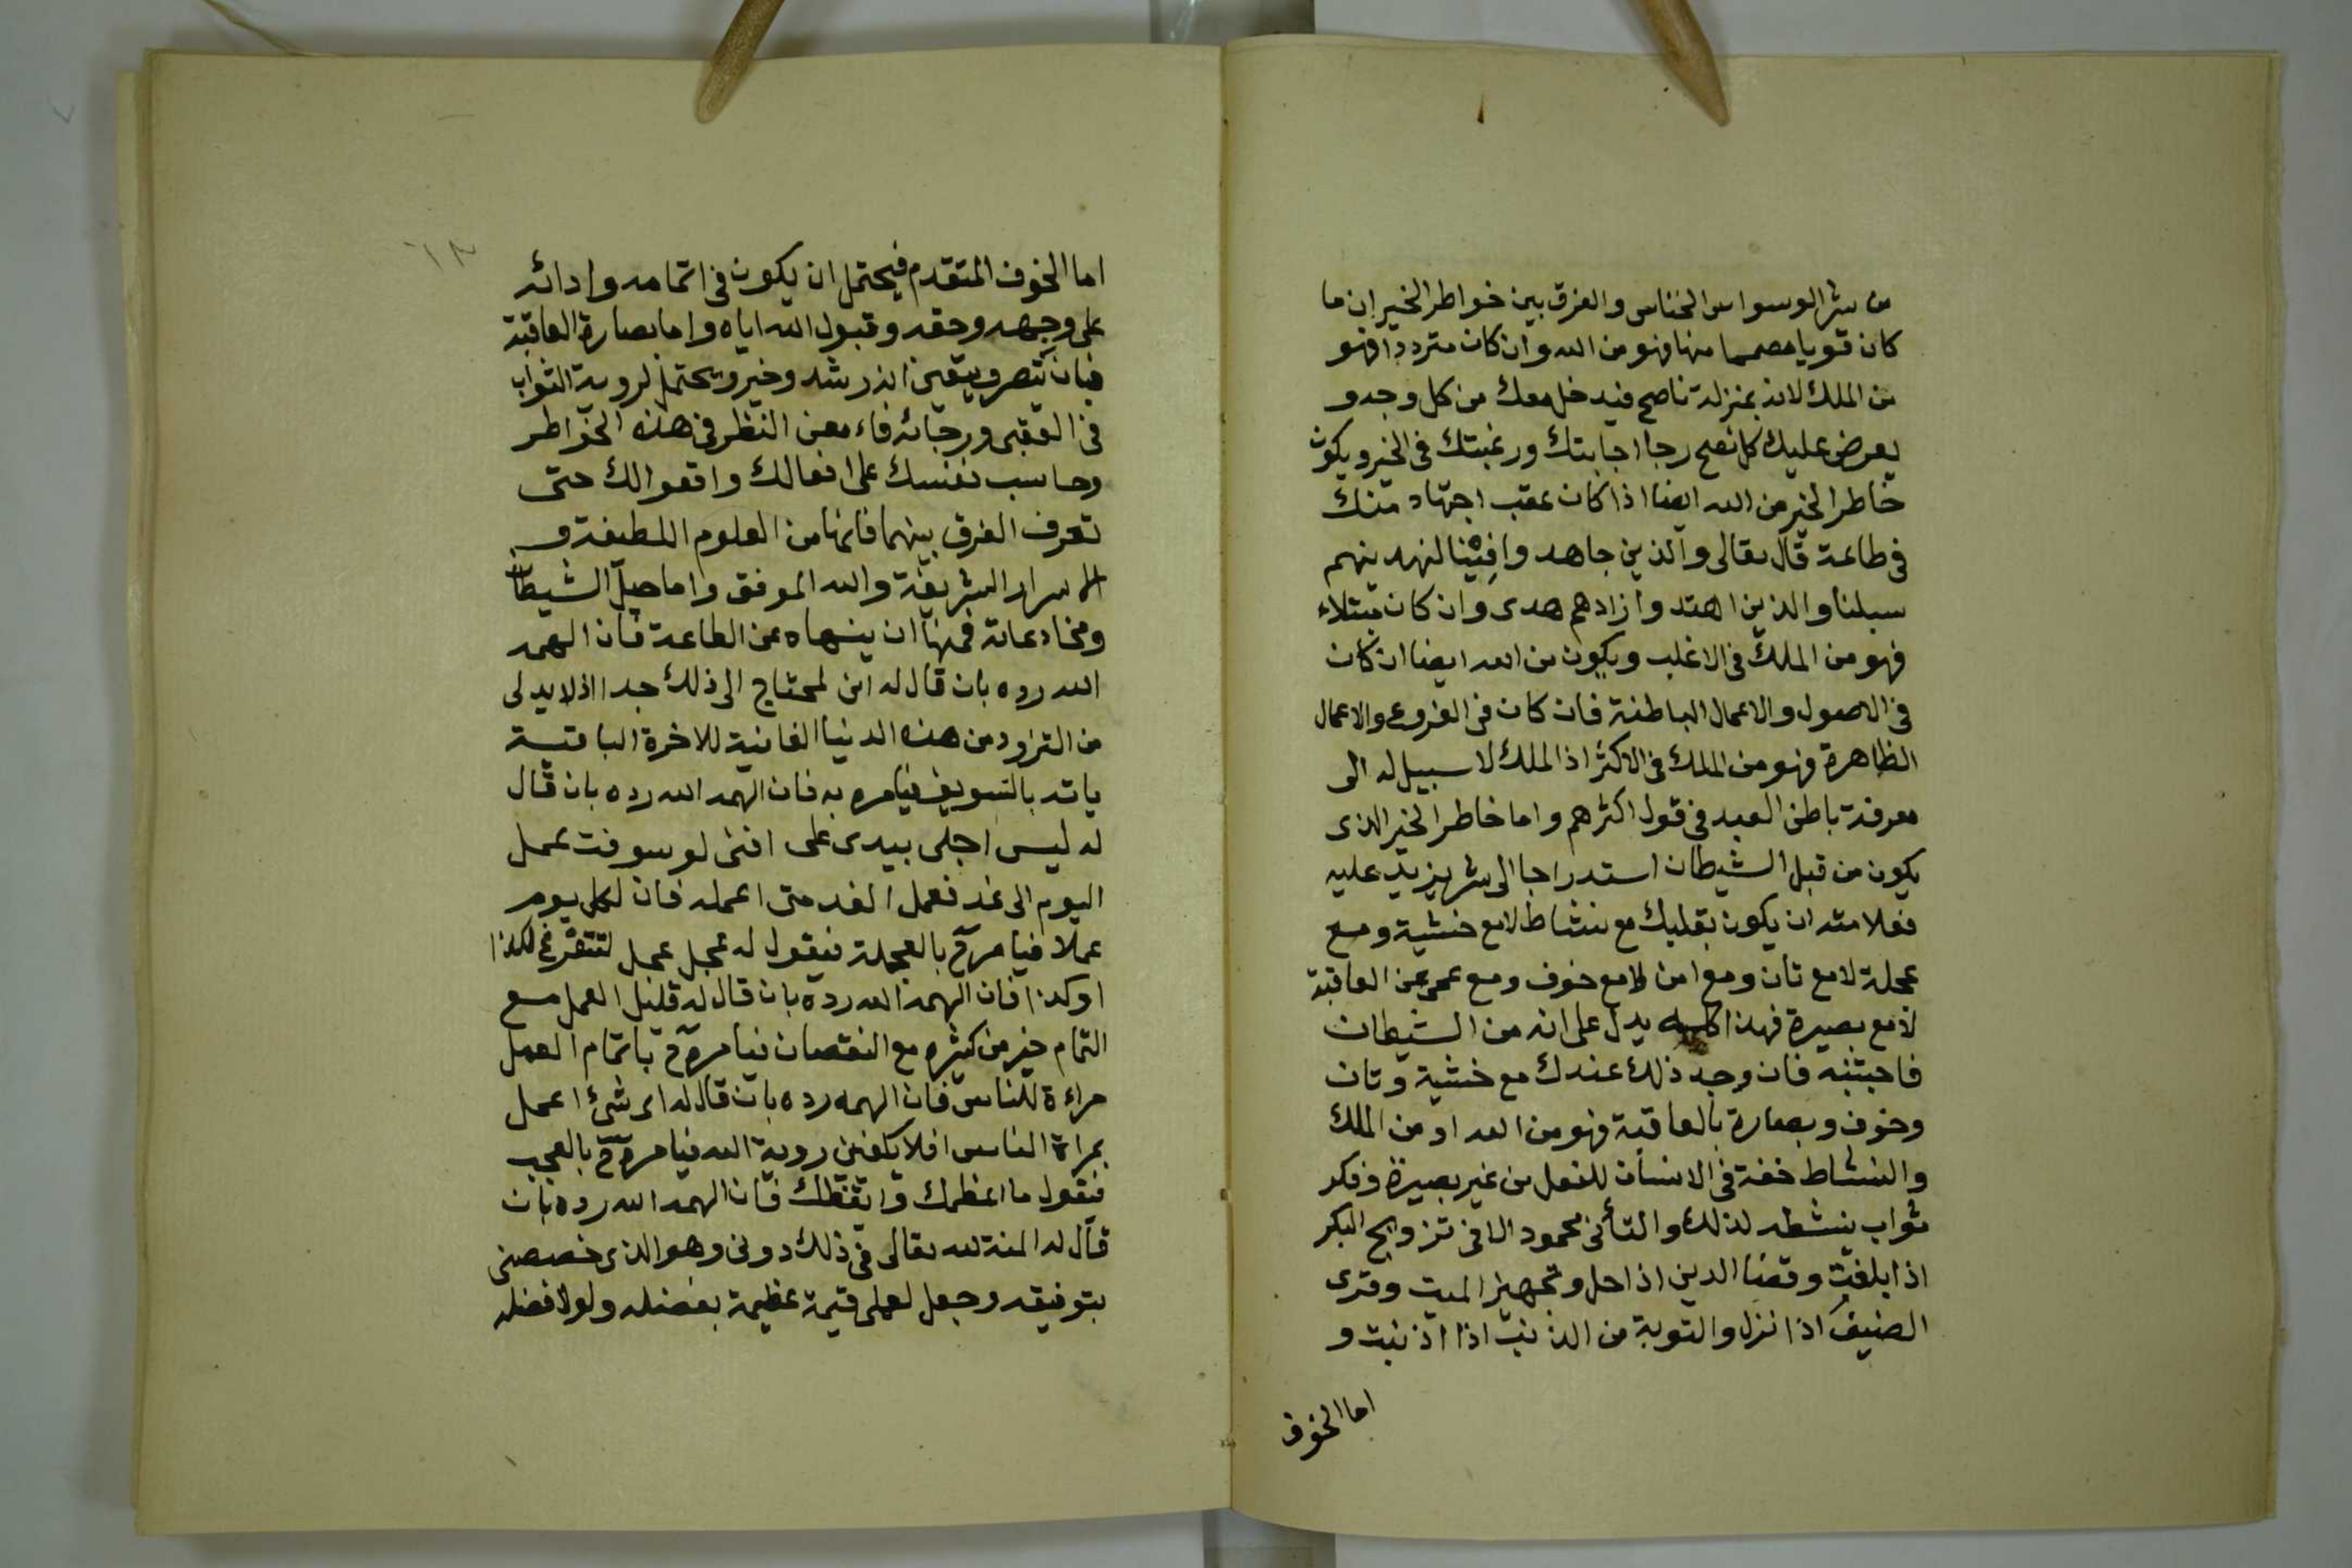 من شر الوسواس الخناس والفرق بين خواطر الخير ان ما
كان قويا مصمما منها فهو من الله وان كان مترددا فهو
من الملك لانه بمنزلة ناصح فيدخل معك من كل وجه و
يعرض عليك كل نصح رجا اجابتك ورغبتك في الخير ويكون
خاطر الخير من الله ايضا اذا كان عقب اجتهاد منك
في طاعة قال تعالى والذين جاهدوا فينا لنهدينهم
سبلنا والذين اهتدوا زادهم هدى وان كان مبتلاء
فهو من الملك في الاغلب ويكون من الله ايضا ان كان
في الاصول والاعمال الباطنة فان كان في الفروع والاعمال
الظاهرة فهو من الملك في الاكثر اذ الملك لا سبيل له الى
معرفة باطن العبد في قول اكثرهم واما خاطر الخير الذى
يكون من قبل الشيطان استدراجا الى شر يزيد عليه
فعلامته ان يكون بقلبك مع نشاط لا مع خشية ومع
عجلة لا مع تان ومع امن لا مع خوف ومع عمى عن العاقبة
لا مع بصيرة فهذا كله يدل على انه من الشيطان
فاجتنبه فان وجد ذلك عندك مع خشية وتان
وخوف وبصارة بالعاقبة فهو من الله او من الملك
والنشاط خفة في الانسان للفعل من غير بصيرة وذكر
ثواب ينشطه لذلك والتأنى محمود الا في تزويج البكر
اذا بلغت وقضا الدين اذا حل وتجهيز الميت وقرى
الضيف اذا نزل والتوبة من الذنب اذا اذنبت و
اما الخوف
١٣
اما الخوف المتقدم فيحتمل ان يكون في اتمامه وادائه
على وجهه وحقه وقبول الله اياه واما بصارة العاقبة
فبان تبصر ويتيقن انه رشد وخير ويحتمل لروية الثواب
في العقبى ورجائه فاءمعن النظر في هذه الخواطر
وحاسب نفسك على افعالك واقوالك حتى
تعرف الفرق بينهما فانها من العلوم اللطيفة و
الاسرار الشريفة والله الموفق واما حيل الشيطان
ومخادعاته فمنها ان ينهاه عن الطاعة فان الهمه
الله رده بان قال له انى لمحتاج الى ذلك جدا اذ لا بد لى
من التزود من هذه الدنيا الفانية للاخرة الباقية
ياته بالتسويف فيامره به فان الهمه الله رده بان قال
له ليس اجلى بيدى على اننى لو سوفت عمل
اليوم الى غد فعمل الغد متى اعمله فان لكل يوم
عملا فيامره ح بالعجلة فيقول له عجل عمل لتتفرغ لكذا
او كذا فان الهمه الله رده بان قال له قليل العمل مع
التمام خير من كثيره مع النقصان فيامره ح باتمام العمل
مراءة للناس فان الهمه رده بان قال له اى شئ اعمل
بمراة الناس افلا يكفينى روية الله فيامره ح بالعجب
فيقول ما اعظمك وايقظك فان الهمه الله رده بان
قال له المنة لله تعالى في ذلك دونى وهو الذى خصصنى
بتوفيقه وجعل لعملى قيمة عظيمة بفضله ولولا فضله